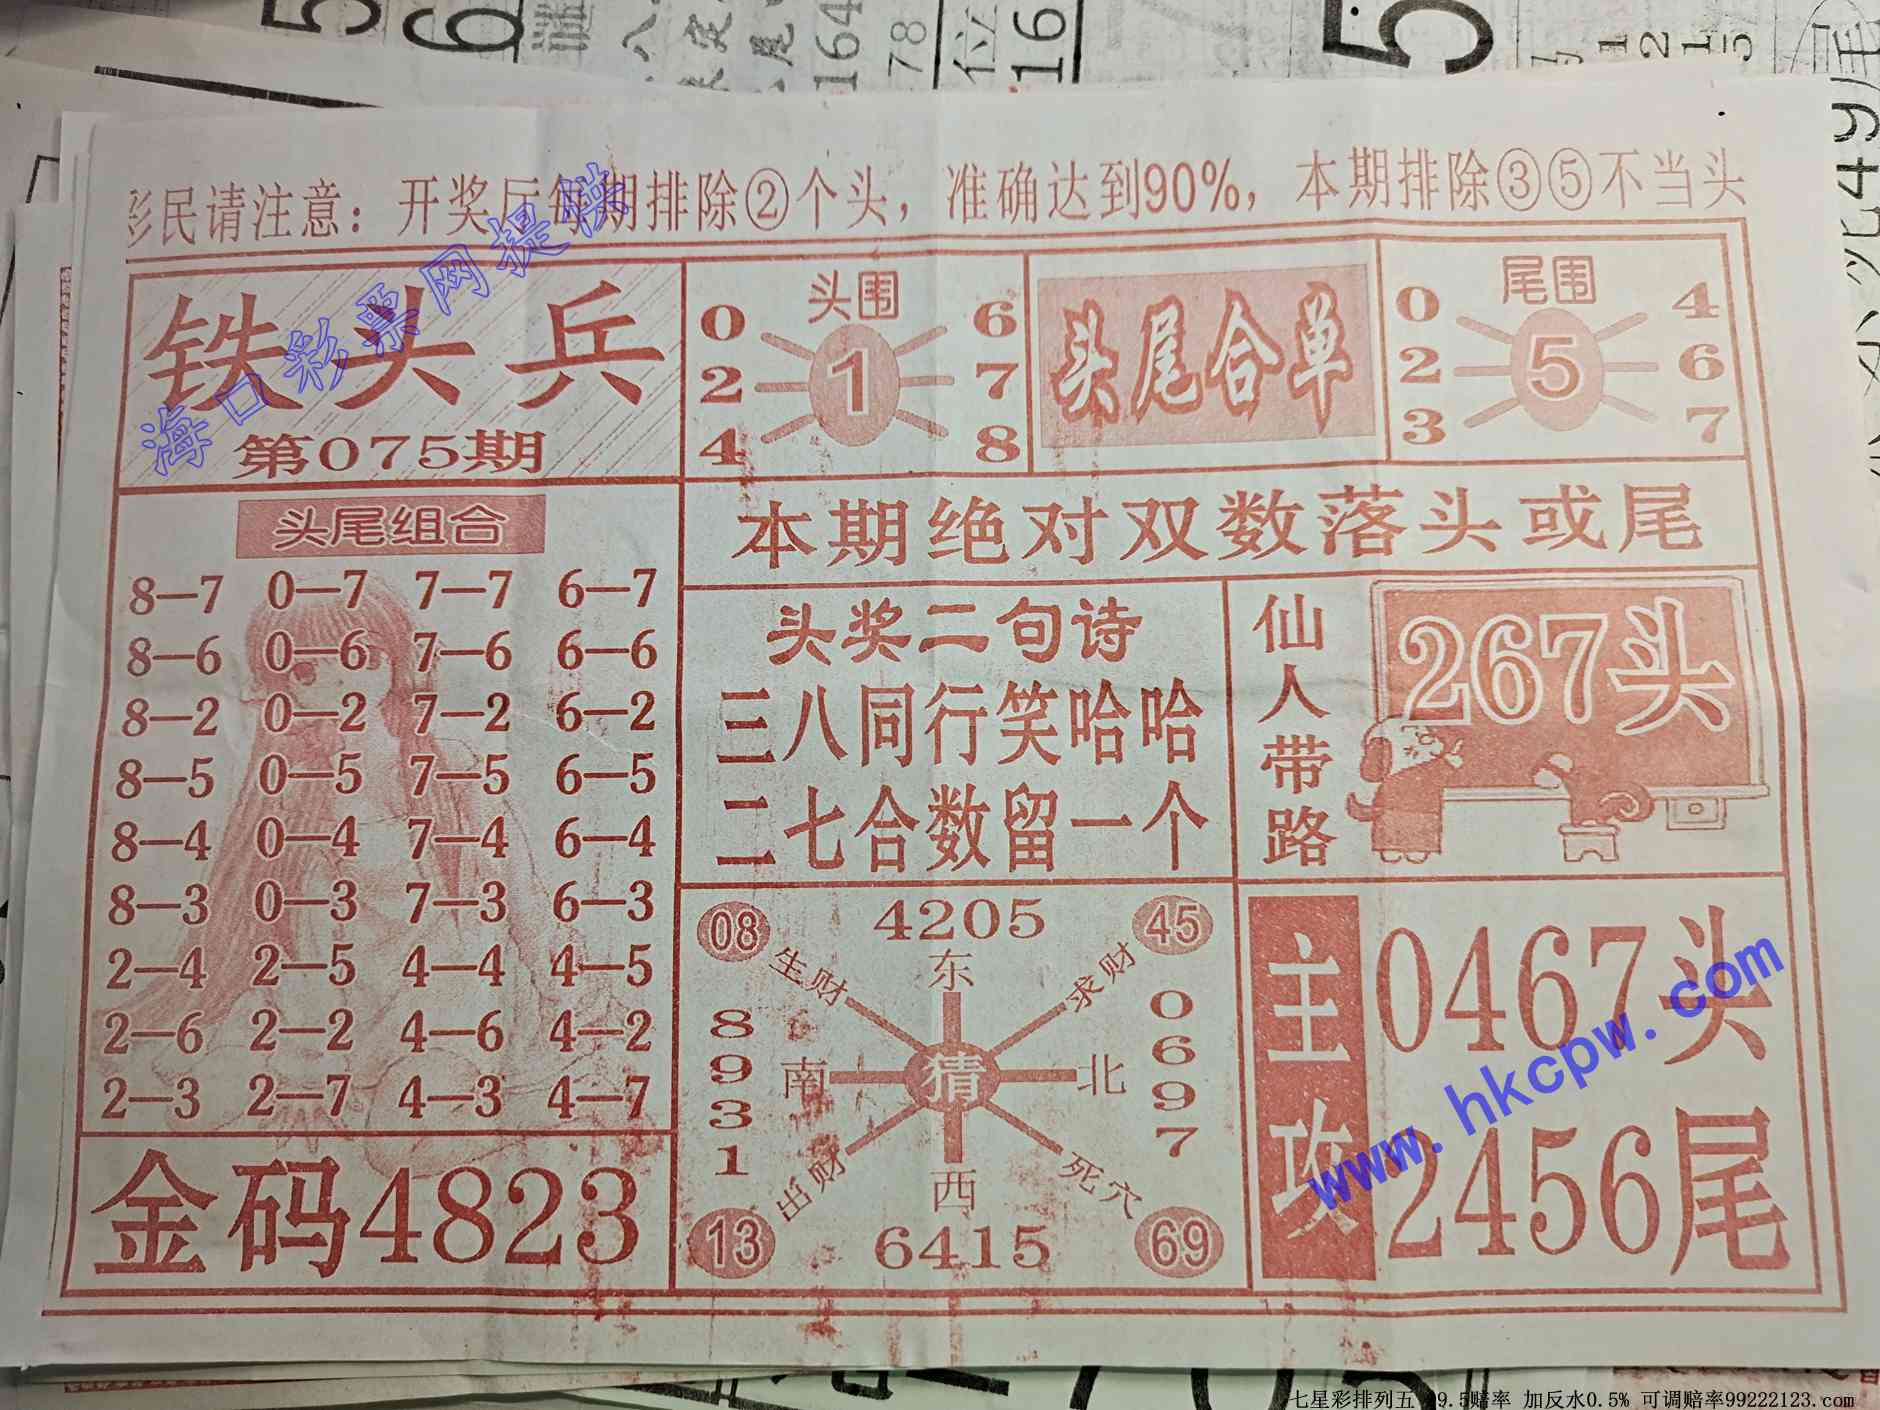 彩民请注意：开奖后每期排除②个头，准确达到90%，本期排除③⑤不当头
铁头兵
第075期
头围
0 6
2 1 7
4 8
头尾合单
尾围
0 4
2 5 6
3 7
头尾组合
8—7 0—7 7—7 6—7
8—6 0—6 7—6 6—6
8—2 0—2 7—2 6—2
8—5 0—5 7—5 6—5
8—4 0—4 7—4 6—4
8—3 0—3 7—3 6—3
2—4 2—5 4—4 4—5
2—6 2—2 4—6 4—2
2—3 2—7 4—3 4—7
金码4823
本期绝对双数落头或尾
头奖二句诗
三八同行笑哈哈
二七合数留一个
仙人带路
267头
08 4205 45
生财 东 求财
8931 南 猜 北 0697
出财 西 死穴
13 6415 69
主攻
0467头
2456尾
海口彩票网提供
www.hkcpw.com
七星彩排列五 9.5赔率 加反水0.5% 可调赔率99222123.com